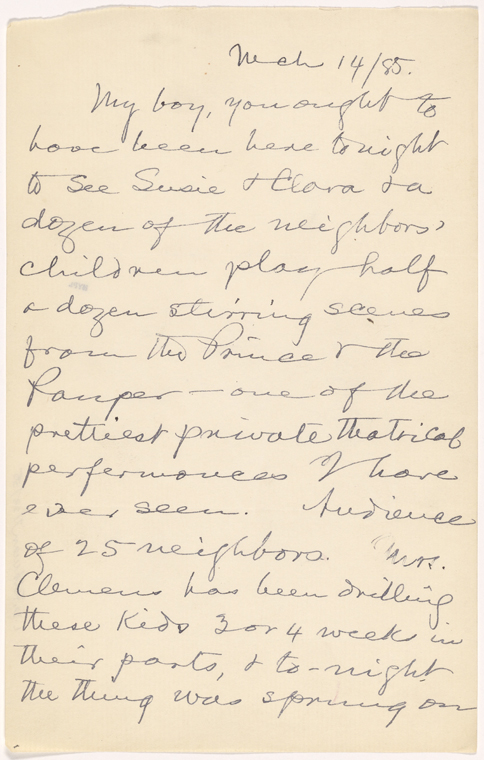 Mch 14/85.
My boy, you ought to
have been here tonight
to see Susie & Clara & a
dozen of the neighbors'
children play half
a dozen stirring scenes
from the Prince & the
Pauper — one of the
prettiest private theatrical
performances I have
ever seen. Audience
of 25 neighbors. Mrs.
Clemens has been drilling
these kids 3 or 4 weeks in
their parts, & to-night
the thing was sprung on